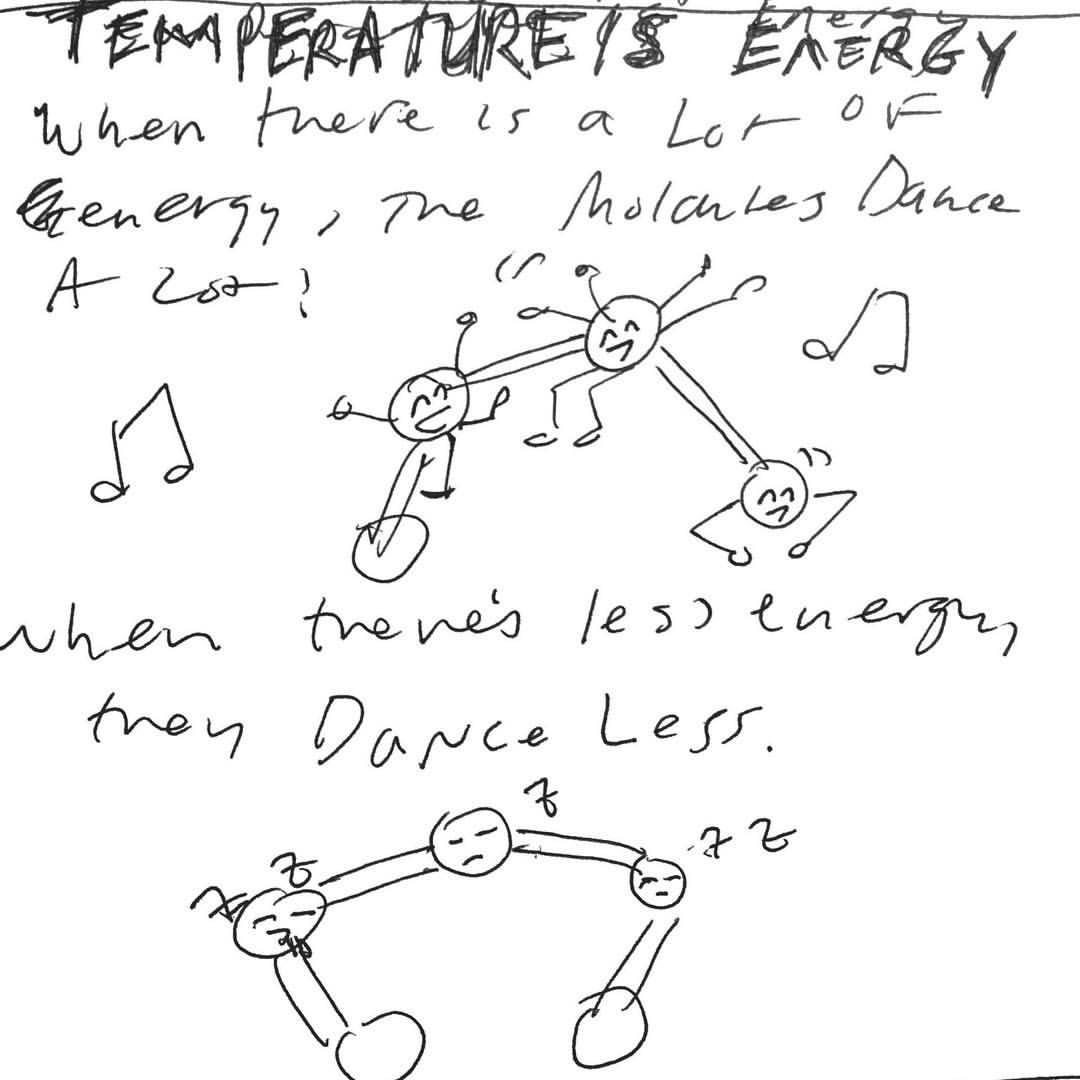 TEMPERATURE IS ENERGY
When there is a Lot OF
energy, The Molcules Dance
A Lot!
when there's less energy,
they Dance Less.
z
z z
z
z